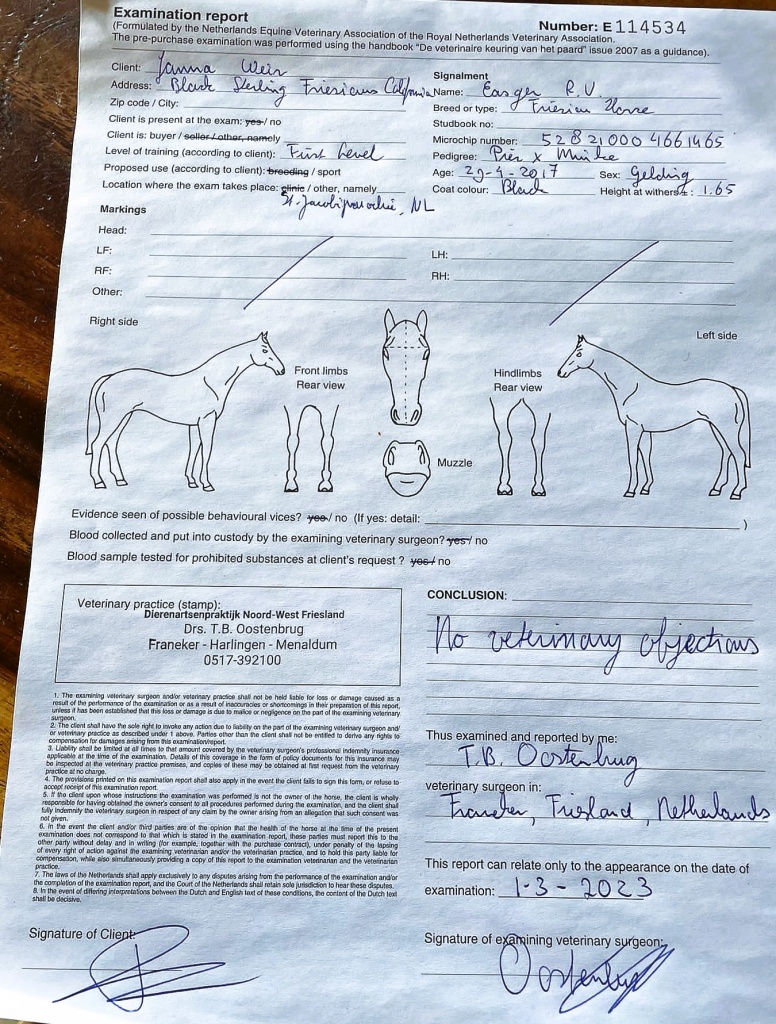 Examination report
Number: E 114534
(Formulated by the Netherlands Equine Veterinary Association of the Royal Netherlands Veterinary Association.
The pre-purchase examination was performed using the handbook "De veterinaire keuring van het paard" issue 2007 as a guidance).
Client: Janna Weir
Address: Black Sterling Friesians California
Zip code / City:
Client is present at the exam: yes / no
Client is: buyer / seller / other, namely
Level of training (according to client): First Level
Proposed use (according to client): breeding / sport
Location where the exam takes place: clinic / other, namely
St. Jacobiparochie, NL
Signalment
Name: R.V.
Breed or type: Friesian Horse
Studbook no:
Microchip number: 528210004661465
Pedigree: x
Age: 29-4-2017 Sex: Gelding
Coat colour: Black Height at withers±: 1.65
Markings
Head:
LF:
LH:
RF:
RH:
Other:
Right side
Left side
Front limbs
Rear view
Hindlimbs
Rear view
Muzzle
Evidence seen of possible behavioural vices? yes / no (If yes: detail: )
Blood collected and put into custody by the examining veterinary surgeon? yes / no
Blood sample tested for prohibited substances at client's request ? yes / no
Veterinary practice (stamp):
Dierenartsenpraktijk Noord-West Friesland
Drs. T.B. Oostenbrug
Franeker - Harlingen - Menaldum
0517-392100
CONCLUSION:
No veterinary objections
1. The examining veterinary surgeon and/or veterinary practice shall not be held liable for loss or damage caused as a
result of the performance of the examination or as a result of inaccuracies or shortcomings in their preparation of this report,
unless it has been established that this loss or damage is due to malice or negligence on the part of the examining veterinary
surgeon.
2. The client shall have the sole right to invoke any action due to liability on the part of the examining veterinary surgeon and/
or veterinary practice as described under 1 above. Parties other than the client shall not be entitled to derive any rights to
compensation for damages arising from this examination/report.
3. Liability shall be limited at all times to that amount covered by the veterinary surgeon's professional indemnity insurance
applicable at the time of the examination. Details of this coverage in the form of policy documents for this insurance may
be inspected at the veterinary practice premises, and copies of these may be obtained at first request from the veterinary
practice at no charge.
4. The provisions printed on this examination report shall also apply in the event the client fails to sign this form, or refuse to
accept receipt of this examination report.
5. If the client upon whose instructions the examination was performed is not the owner of the horse, the client is wholly
responsible for having obtained the owner's consent to all procedures performed during the examination, and the client shall
fully indemnify the veterinary surgeon in respect of any claim by the owner arising from an allegation that such consent was
not given.
6. In the event the client and/or third parties are of the opinion that the health of the horse at the time of the present
examination does not correspond to that which is stated in the examination report, these parties must report this to the
other party without delay and in writing (for example, together with the purchase contract), under penalty of the lapsing
of every right of action against the examining veterinarian and/or the veterinary practice, and to hold this party liable for
compensation, while also simultaneously providing a copy of this report to the examination veterinarian and the veterinarian
practice.
7. The laws of the Netherlands shall apply exclusively to any disputes arising from the performance of the examination and/or
the completion of the examination report, and the Court of the Netherlands shall retain sole jurisdiction to hear these disputes.
8. In the event of differing interpretations between the Dutch and English text of these conditions, the content of the Dutch text
shall be decisive.
Thus examined and reported by me:
T.B. Oostenbrug
veterinary surgeon in:
Franeker, Friesland, Netherlands
This report can relate only to the appearance on the date of
examination: 1-3-2023
Signature of Client:
Signature of examining veterinary surgeon:
Oostenbrug